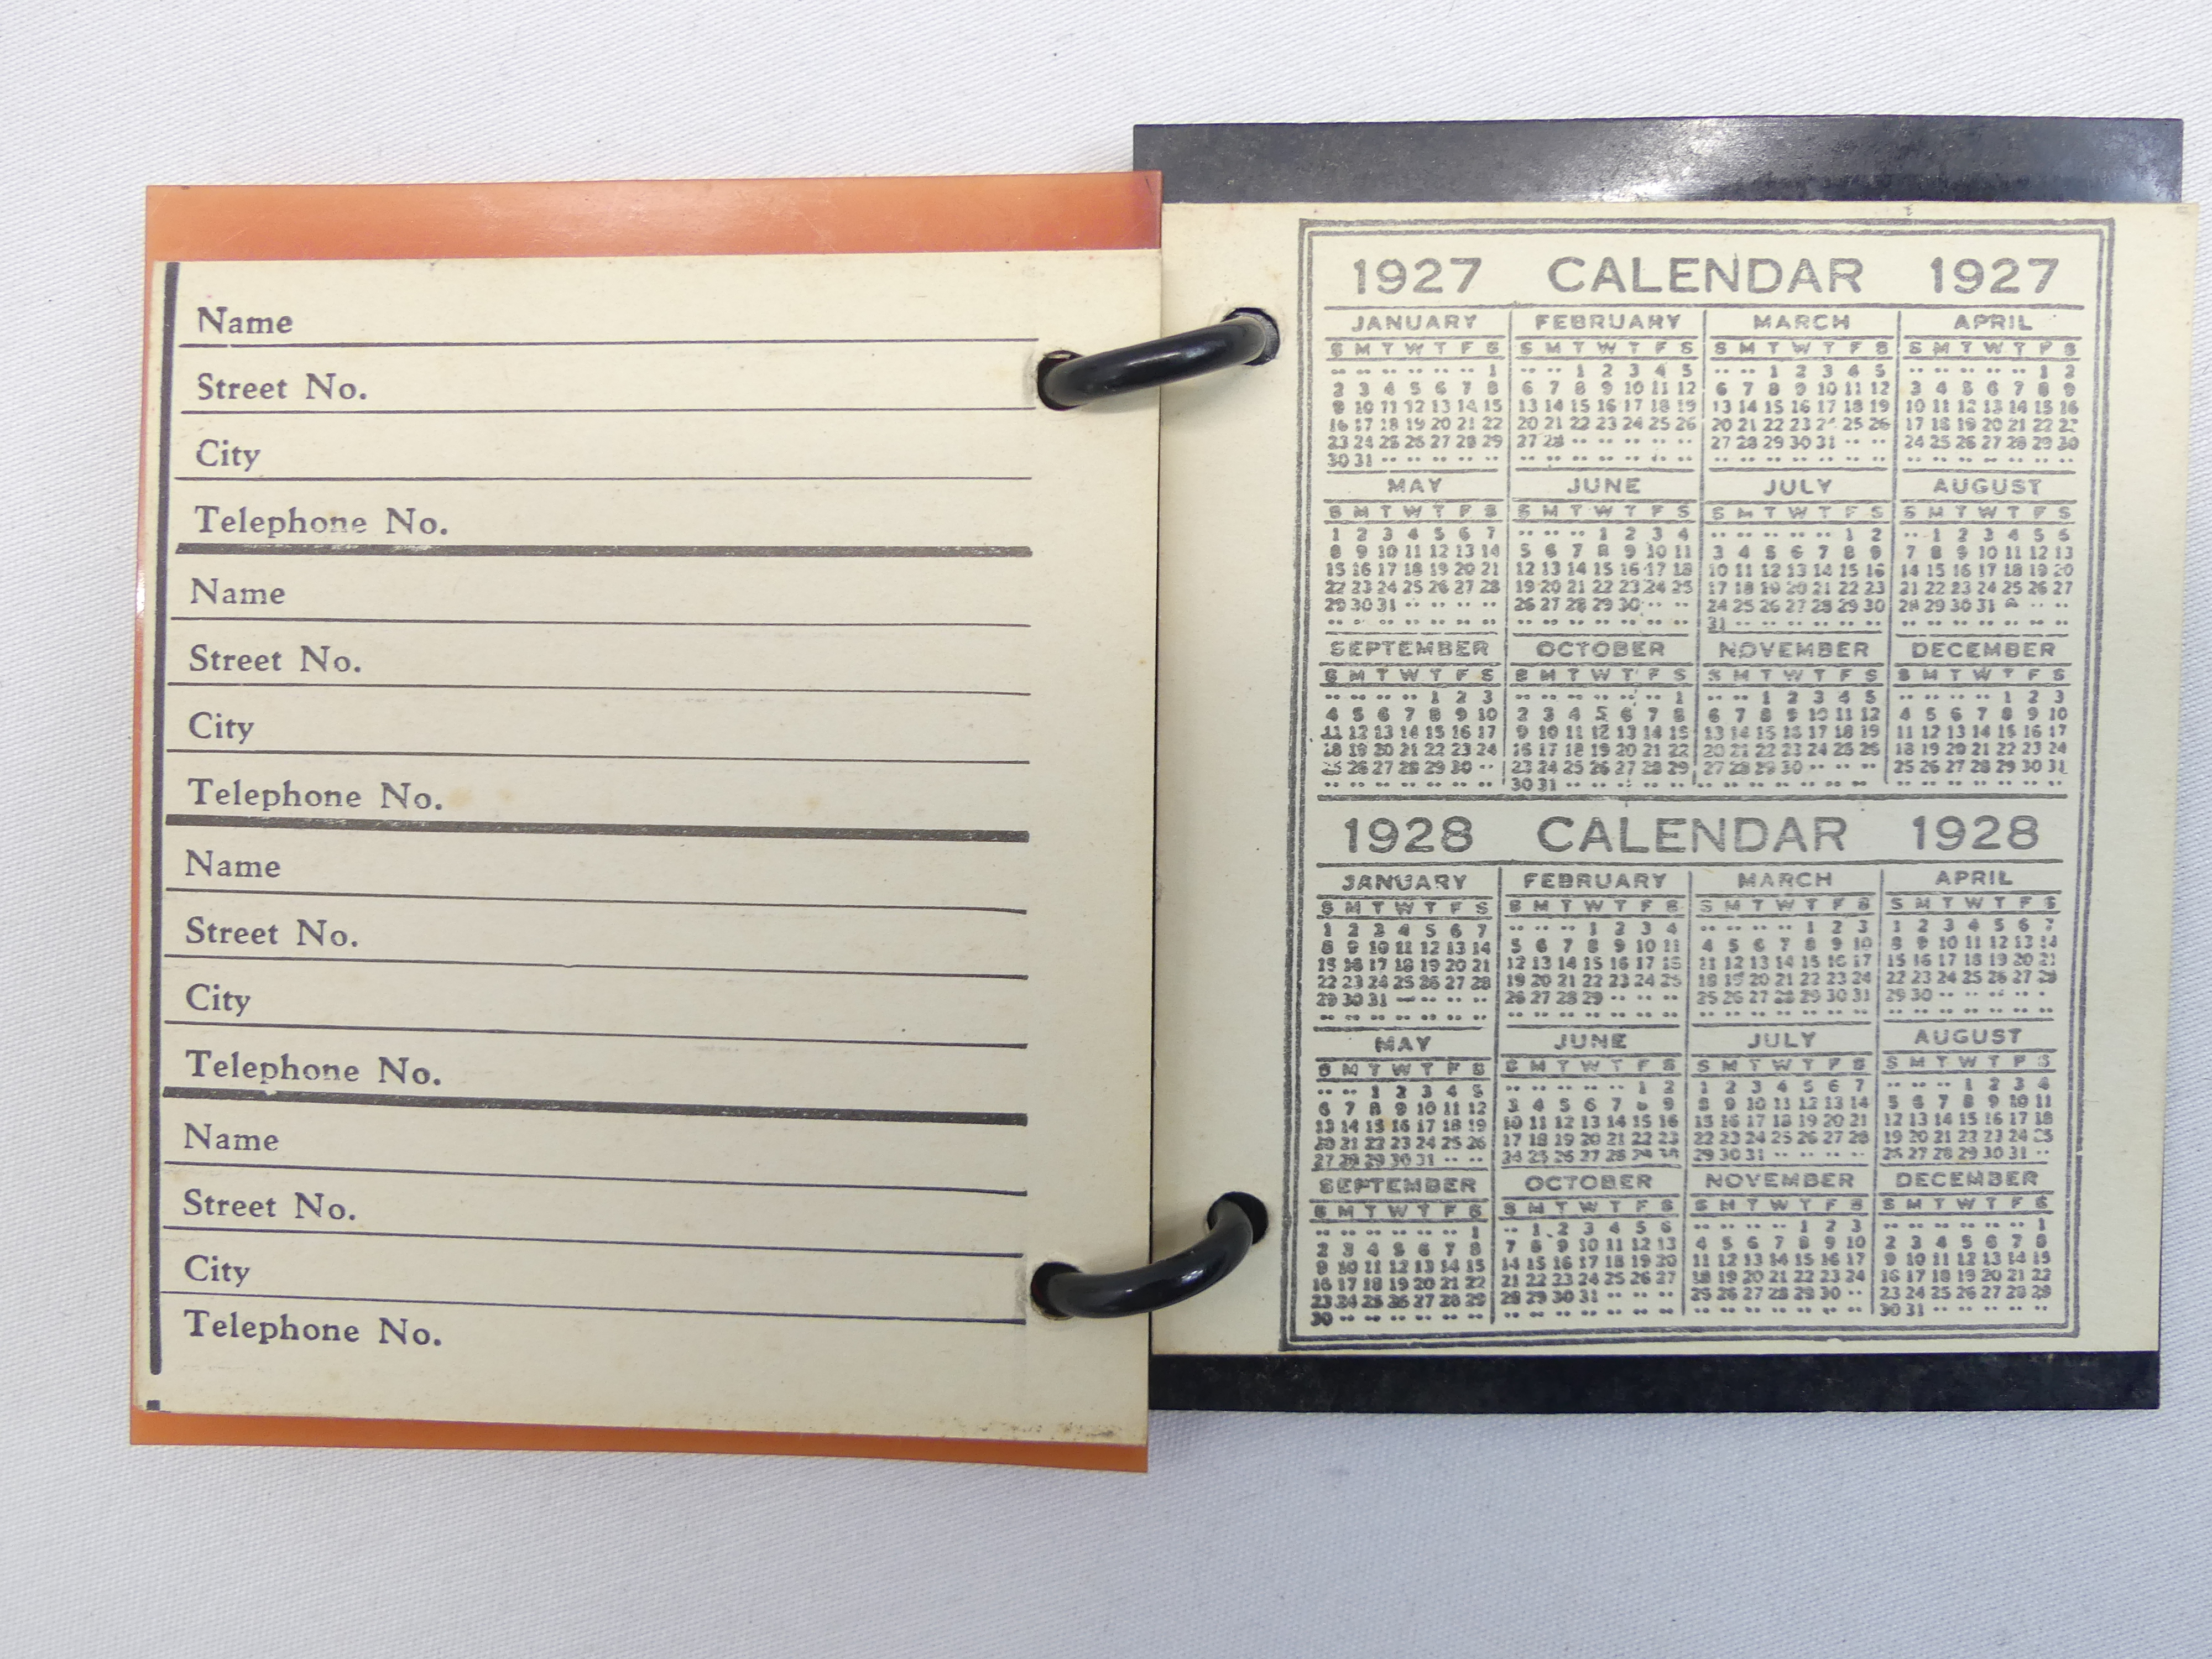 Name
Street No.
City
Telephone No.
Name
Street No.
City
Telephone No.
Name
Street No.
City
Telephone No.
Name
Street No.
City
Telephone No.
1927 CALENDAR 1927
JANUARY FEBRUARY MARCH APRIL
S M T W T F S S M T W T F S S M T W T F S S M T W T F S
1 1 2 3 4 5 1 2 3 4 5 1 2
2 3 4 5 6 7 8 6 7 8 9 10 11 12 6 7 8 9 10 11 12 3 4 5 6 7 8 9
9 10 11 12 13 14 15 13 14 15 16 17 18 19 13 14 15 16 17 18 19 10 11 12 13 14 15 16
16 17 18 19 20 21 22 20 21 22 23 24 25 26 20 21 22 23 24 25 26 17 18 19 20 21 22 23
23 24 25 26 27 28 29 27 28 27 28 29 30 31 24 25 26 27 28 29 30
30 31
MAY JUNE JULY AUGUST
S M T W T F S S M T W T F S S M T W T F S S M T W T F S
1 2 3 4 5 6 7 1 2 3 4 1 2 1 2 3 4 5 6
8 9 10 11 12 13 14 5 6 7 8 9 10 11 3 4 5 6 7 8 9 7 8 9 10 11 12 13
15 16 17 18 19 20 21 12 13 14 15 16 17 18 10 11 12 13 14 15 16 14 15 16 17 18 19 20
22 23 24 25 26 27 28 19 20 21 22 23 24 25 17 18 19 20 21 22 23 21 22 23 24 25 26 27
29 30 31 26 27 28 29 30 24 25 26 27 28 29 30 28 29 30 31
31
SEPTEMBER OCTOBER NOVEMBER DECEMBER
S M T W T F S S M T W T F S S M T W T F S S M T W T F S
1 2 3 1 1 2 3 4 5 1 2 3
4 5 6 7 8 9 10 2 3 4 5 6 7 8 6 7 8 9 10 11 12 4 5 6 7 8 9 10
11 12 13 14 15 16 17 9 10 11 12 13 14 15 13 14 15 16 17 18 19 11 12 13 14 15 16 17
18 19 20 21 22 23 24 16 17 18 19 20 21 22 20 21 22 23 24 25 26 18 19 20 21 22 23 24
25 26 27 28 29 30 23 24 25 26 27 28 29 27 28 29 30 25 26 27 28 29 30 31
30 31
1928 CALENDAR 1928
JANUARY FEBRUARY MARCH APRIL
S M T W T F S S M T W T F S S M T W T F S S M T W T F S
1 2 3 4 5 6 7 1 2 3 4 1 2 3 1 2 3 4 5 6 7
8 9 10 11 12 13 14 5 6 7 8 9 10 11 4 5 6 7 8 9 10 8 9 10 11 12 13 14
15 16 17 18 19 20 21 12 13 14 15 16 17 18 11 12 13 14 15 16 17 15 16 17 18 19 20 21
22 23 24 25 26 27 28 19 20 21 22 23 24 25 18 19 20 21 22 23 24 22 23 24 25 26 27 28
29 30 31 26 27 28 29 25 26 27 28 29 30 31 29 30
MAY JUNE JULY AUGUST
S M T W T F S S M T W T F S S M T W T F S S M T W T F S
1 2 3 4 5 1 2 1 2 3 4 5 6 7 1 2 3 4
6 7 8 9 10 11 12 3 4 5 6 7 8 9 8 9 10 11 12 13 14 5 6 7 8 9 10 11
13 14 15 16 17 18 19 10 11 12 13 14 15 16 15 16 17 18 19 20 21 12 13 14 15 16 17 18
20 21 22 23 24 25 26 17 18 19 20 21 22 23 22 23 24 25 26 27 28 19 20 21 22 23 24 25
27 28 29 30 31 24 25 26 27 28 29 30 29 30 31 26 27 28 29 30 31
SEPTEMBER OCTOBER NOVEMBER DECEMBER
S M T W T F S S M T W T F S S M T W T F S S M T W T F S
1 1 2 3 4 5 6 1 2 3 1
2 3 4 5 6 7 8 7 8 9 10 11 12 13 4 5 6 7 8 9 10 2 3 4 5 6 7 8
9 10 11 12 13 14 15 14 15 16 17 18 19 20 11 12 13 14 15 16 17 9 10 11 12 13 14 15
16 17 18 19 20 21 22 21 22 23 24 25 26 27 18 19 20 21 22 23 24 16 17 18 19 20 21 22
23 24 25 26 27 28 29 28 29 30 31 25 26 27 28 29 30 23 24 25 26 27 28 29
30 30 31